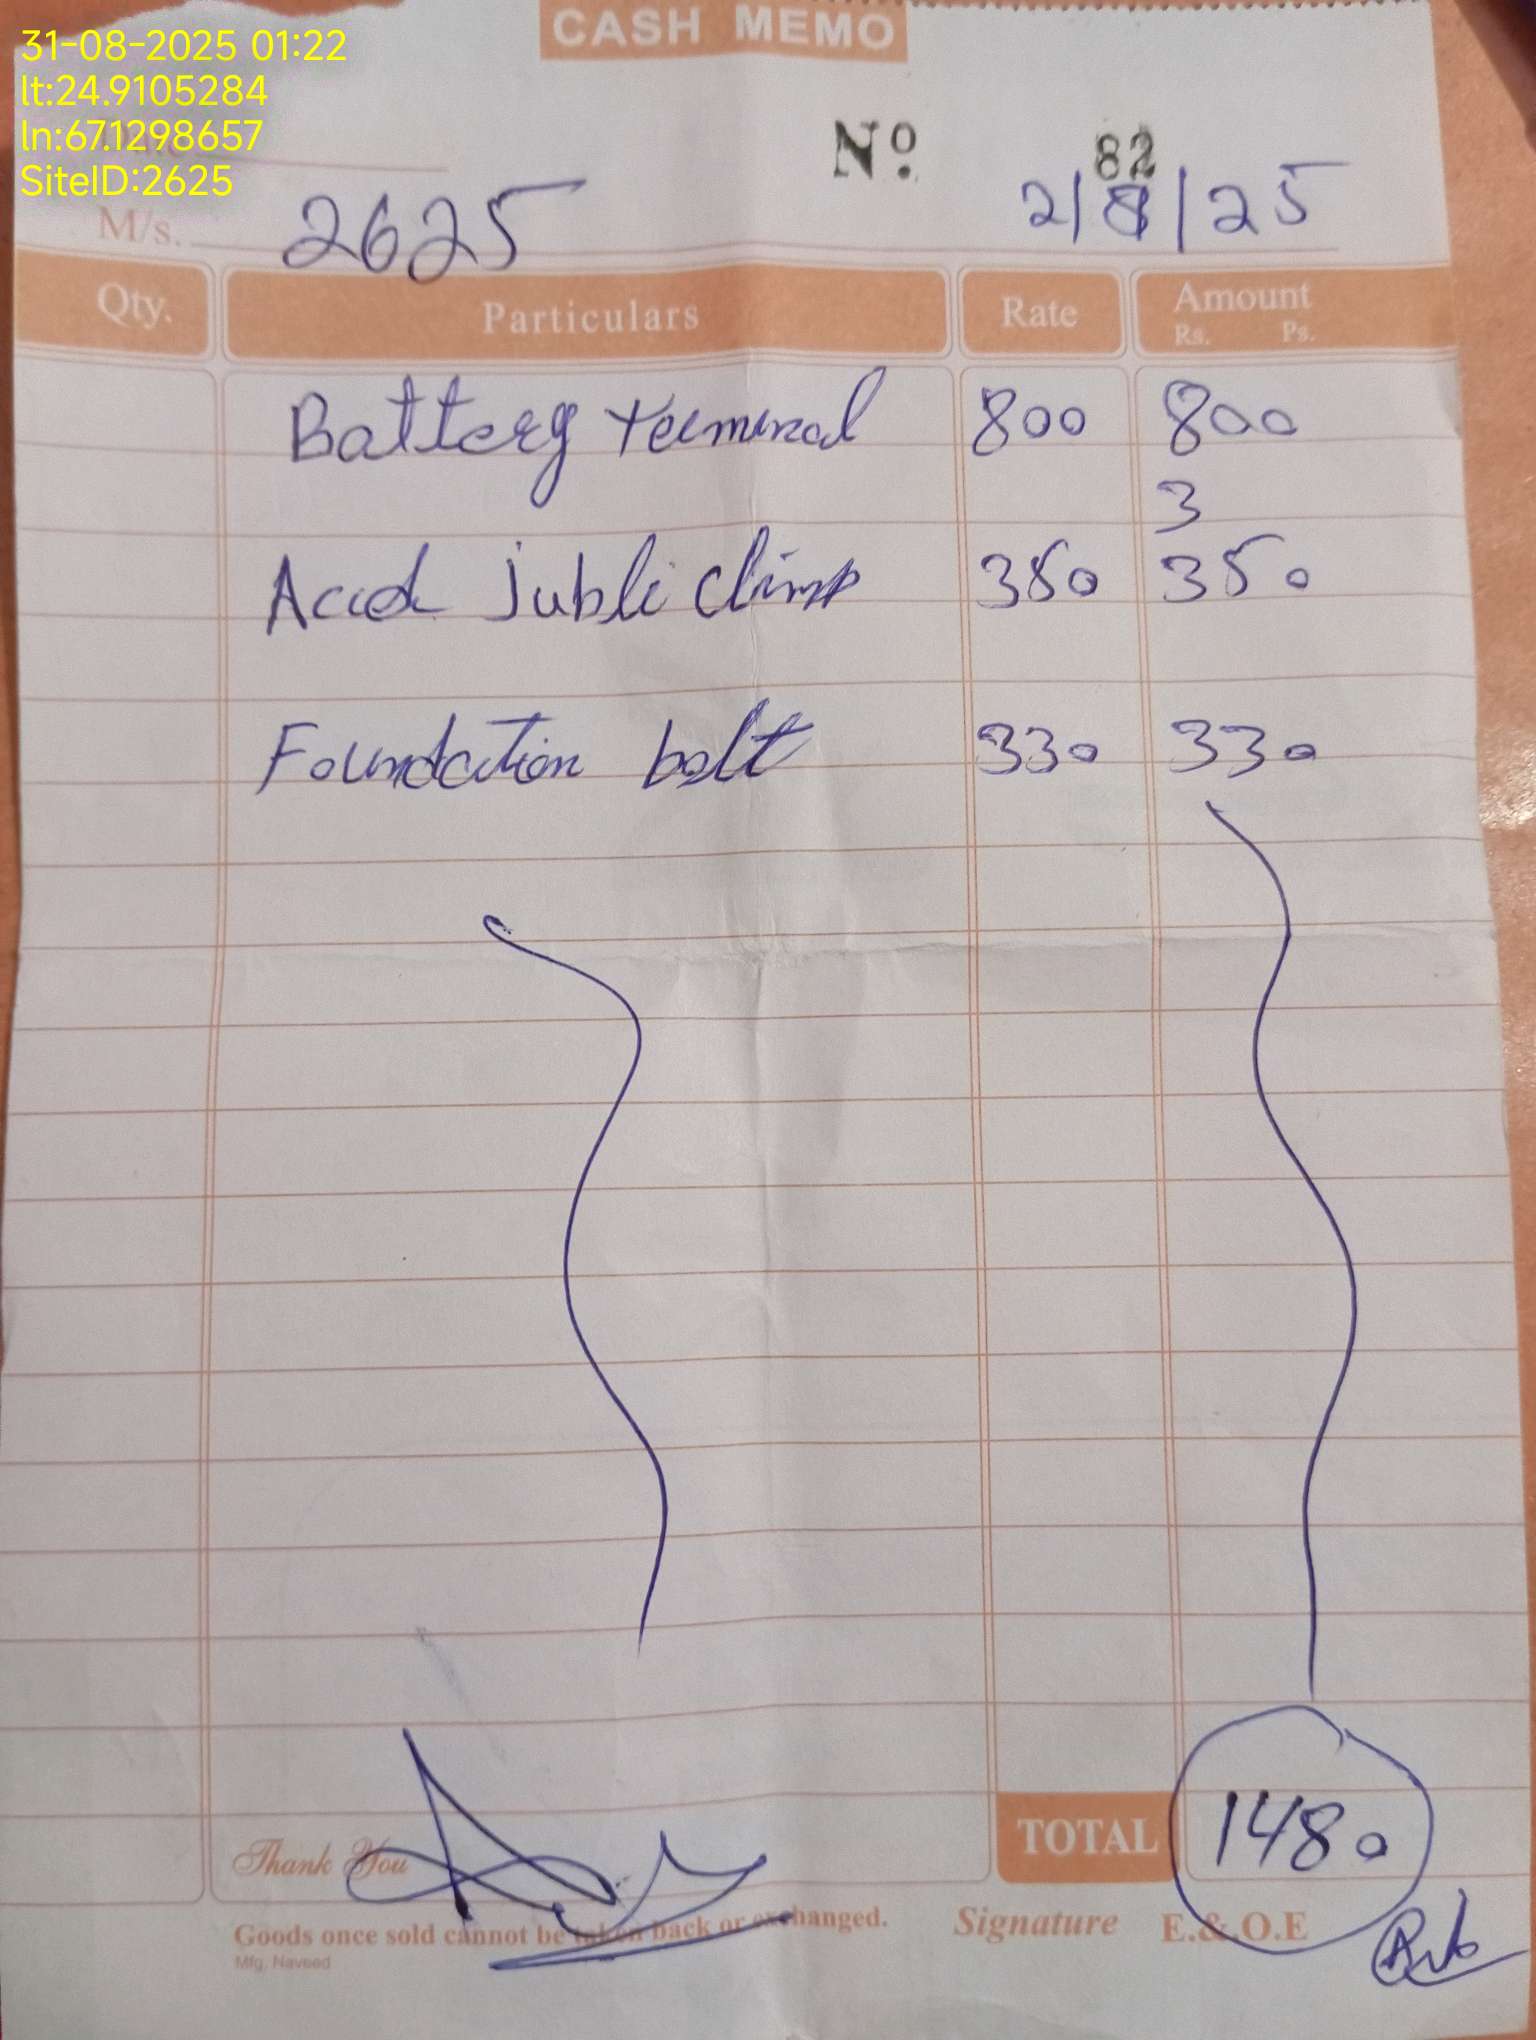 CASH MEMO
31-08-2025 01:22
lt:24.9105284
ln:671298657
SiteID:2625
No. 82
2/8/25
M/s. 2625
Qty. Particulars Rate Amount
Rs. Ps.
Battery terminal 800 800
3
jubli Climp 350 350
Foundation bolt 330 330
TOTAL 1480
Thank You
Goods once sold cannot be taken back or exchanged. Signature E.&.O.E
Mfg. Naveed